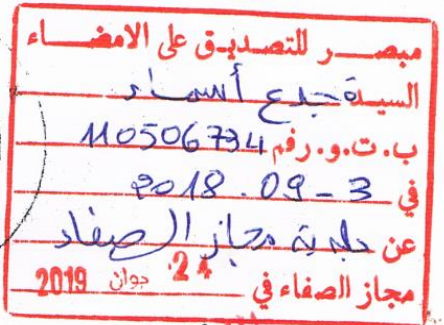 مبصر للتصديق على الامضاء
السيدة جدع أسماء
ب.ت.و.رقم 110506734
في 3-09.2018
عن بلدية مجاز الصفاء
مجاز الصفاء في 24 جوان 2019